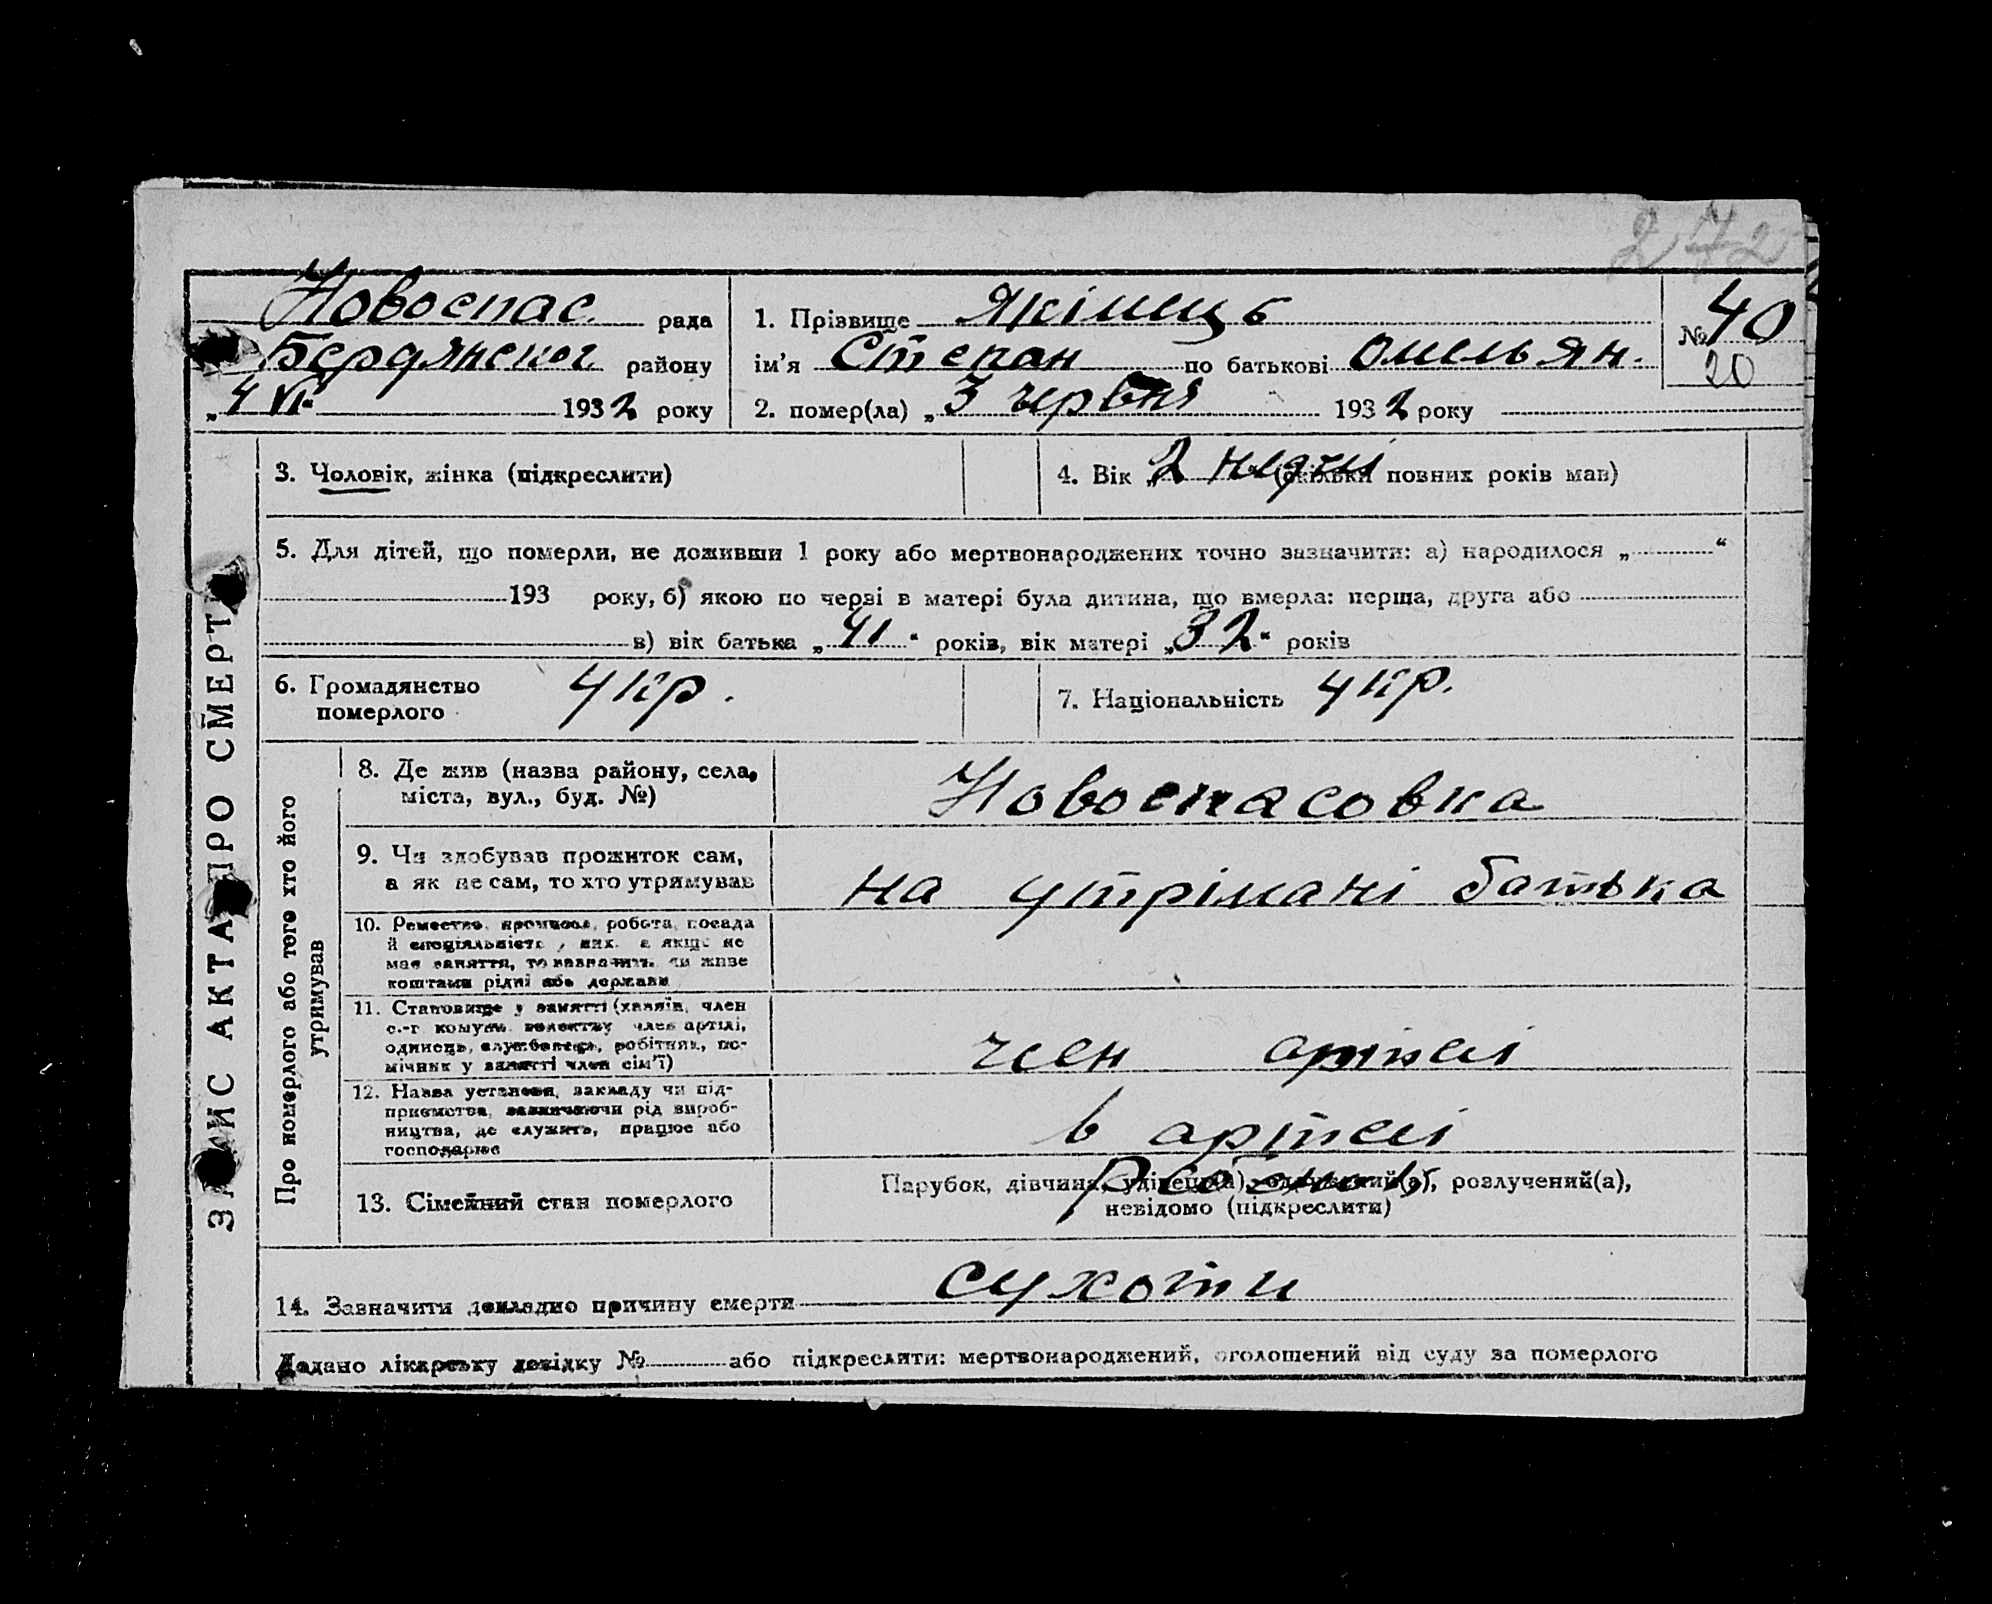 272
Новоспас. рада
Бердянског району
„4 VI“ 1932 року
1. Прізвище Якімець
ім'я Степан по батькові Омельян.
2. помер(ла) „3 червня 1932 року
№ 40
20
ЗАПИС АКТА ПРО СМЕРТЬ
3. Чоловік, жінка (підкреслити)
4. Вік „2 неділі (скільки повних років мав)
5. Для дітей, що померли, не доживши 1 року або мертвонароджених точно зазначити: а) народилося „ “
193 року, б) якою по черзі в матері була дитина, що вмерла: перша, друга або
в) вік батька „41“ років, вік матері „32“ років
6. Громадянство
померлого
укр.
7. Національність укр.
Про померлого або того хто його
утримував
8. Де жив (назва району, села,
міста, вул., буд. №)
Новоспасовка
9. Чи здобував прожиток сам,
а як не сам, то хто утримував
на утрімані батька
10. Ремество, промисел, робота, посада
й спеціяльність у них, а якщо не
має заняття, то зазначить чи живе
коштами рідні або держави
11. Становище у занятті (хазяїн, член
с.-г комуни, колективу член артілі,
одинець, службовець, робітник, по-
мічник у занятті член сім'ї)
член артелі
12. Назва установи, закладу чи під-
приємства, зазначаючи рід вироб-
ництва, де служить, працює або
господарює
в артелі
13. Сімейний стан померлого
Парубок, дівчина, удівець(а), одружений(а), розлучений(а),
невідомо (підкреслити)
14. Зазначити докладно причину смерти сухоти
Додано лікарську довідку № або підкреслити: мертвонароджений, оголошений від суду за померлого